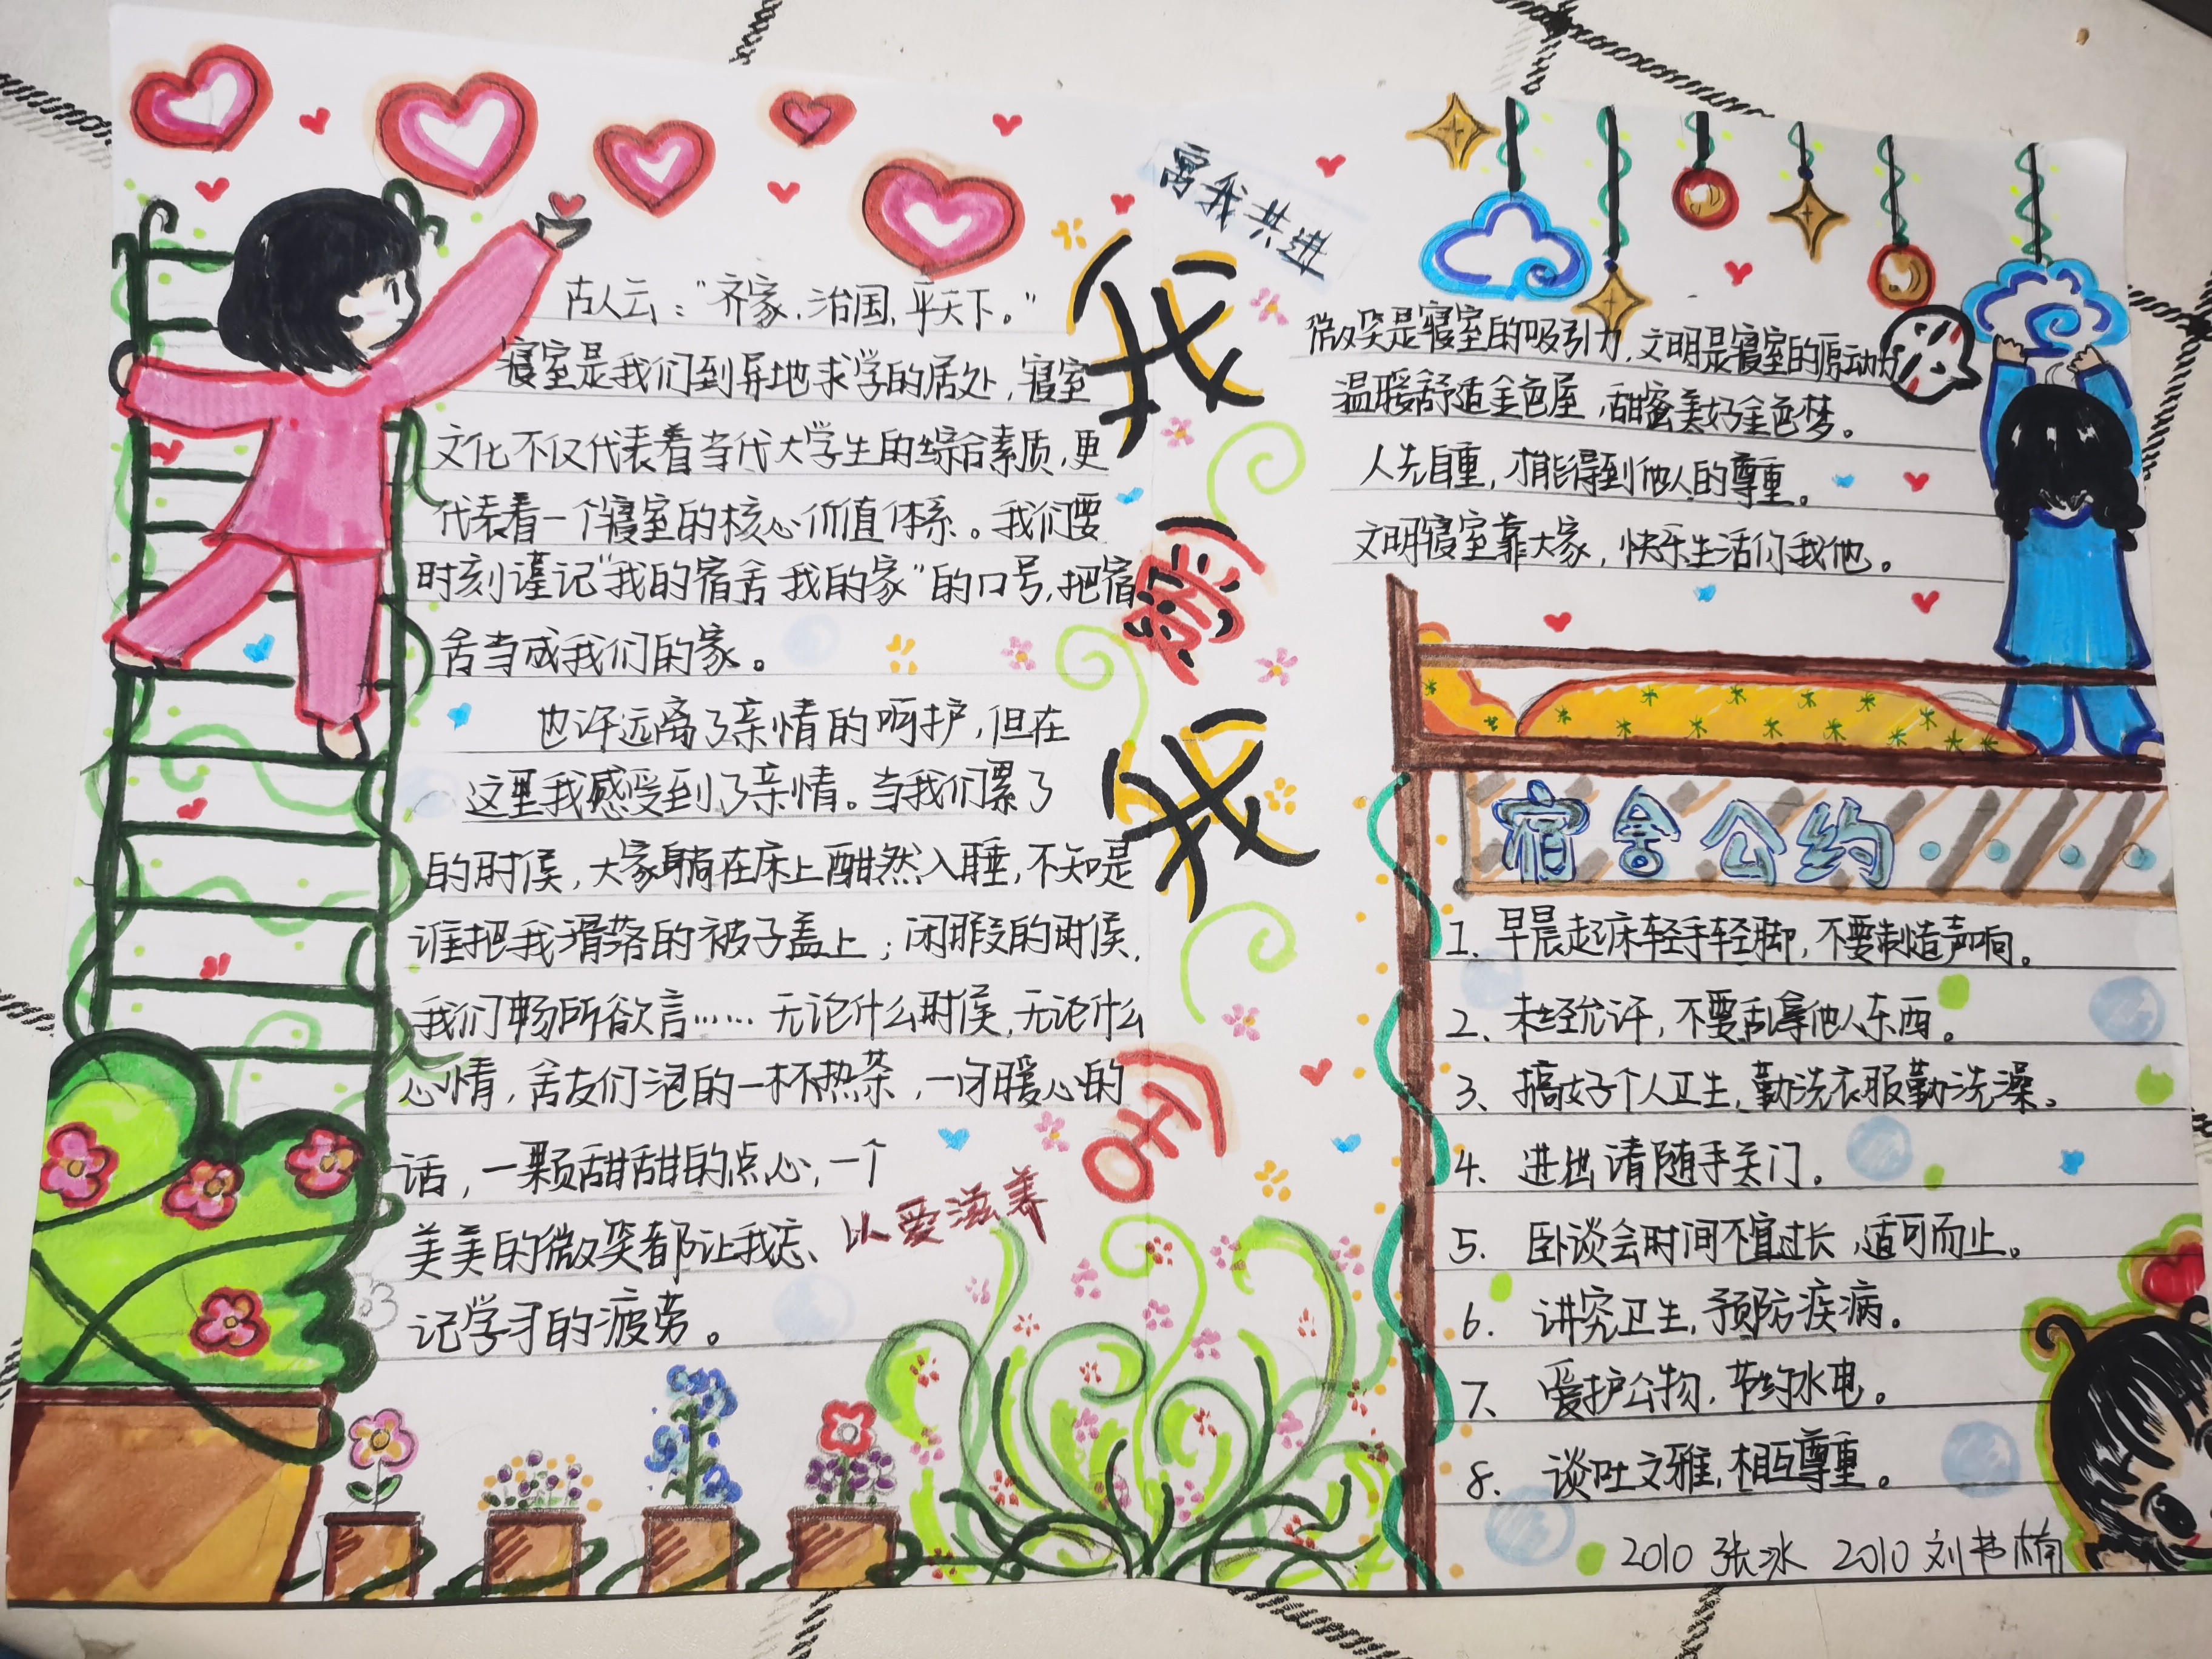 古人云：“齐家、治国、平天下。”
寝室是我们到异地求学的居处，寝室
文化不仅代表着当代大学生的综合素质，更
代表着一个寝室的核心价值体系。我们要
时刻谨记“我的宿舍 我的家”的口号，把宿
舍当成我们的家。
也许远离了亲情的呵护，但在
这里我感受到了亲情。当我们累了
的时候，大家躺在床上酣然入睡，不知是
谁把我滑落的被子盖上；闲暇的时候，
我们畅所欲言……无论什么时候，无论什么
心情，舍友们泡的一杯热茶，一句暖心的
话，一颗甜甜的点心，一个
美美的微笑都让我忘
记学习的疲劳。
以爱滋养
寓我共进
我
爱
我
微笑是寝室的吸引力，文明是寝室的原动力
温暖舒适金色屋，甜蜜美好金色梦。
人先自重，才能得到他人的尊重。
文明寝室靠大家，快乐生活你我他。
宿舍公约
1、早晨起床轻手轻脚，不要制造声响。
2、未经允许，不要乱拿他人东西。
3、搞好个人卫生，勤洗衣服勤洗澡。
4、进出请随手关门。
5、卧谈会时间不宜过长，适可而止。
6、讲究卫生，预防疾病。
7、爱护公物，节约水电。
8、谈吐文雅，相互尊重。
2010 张冰 2010 刘书楠